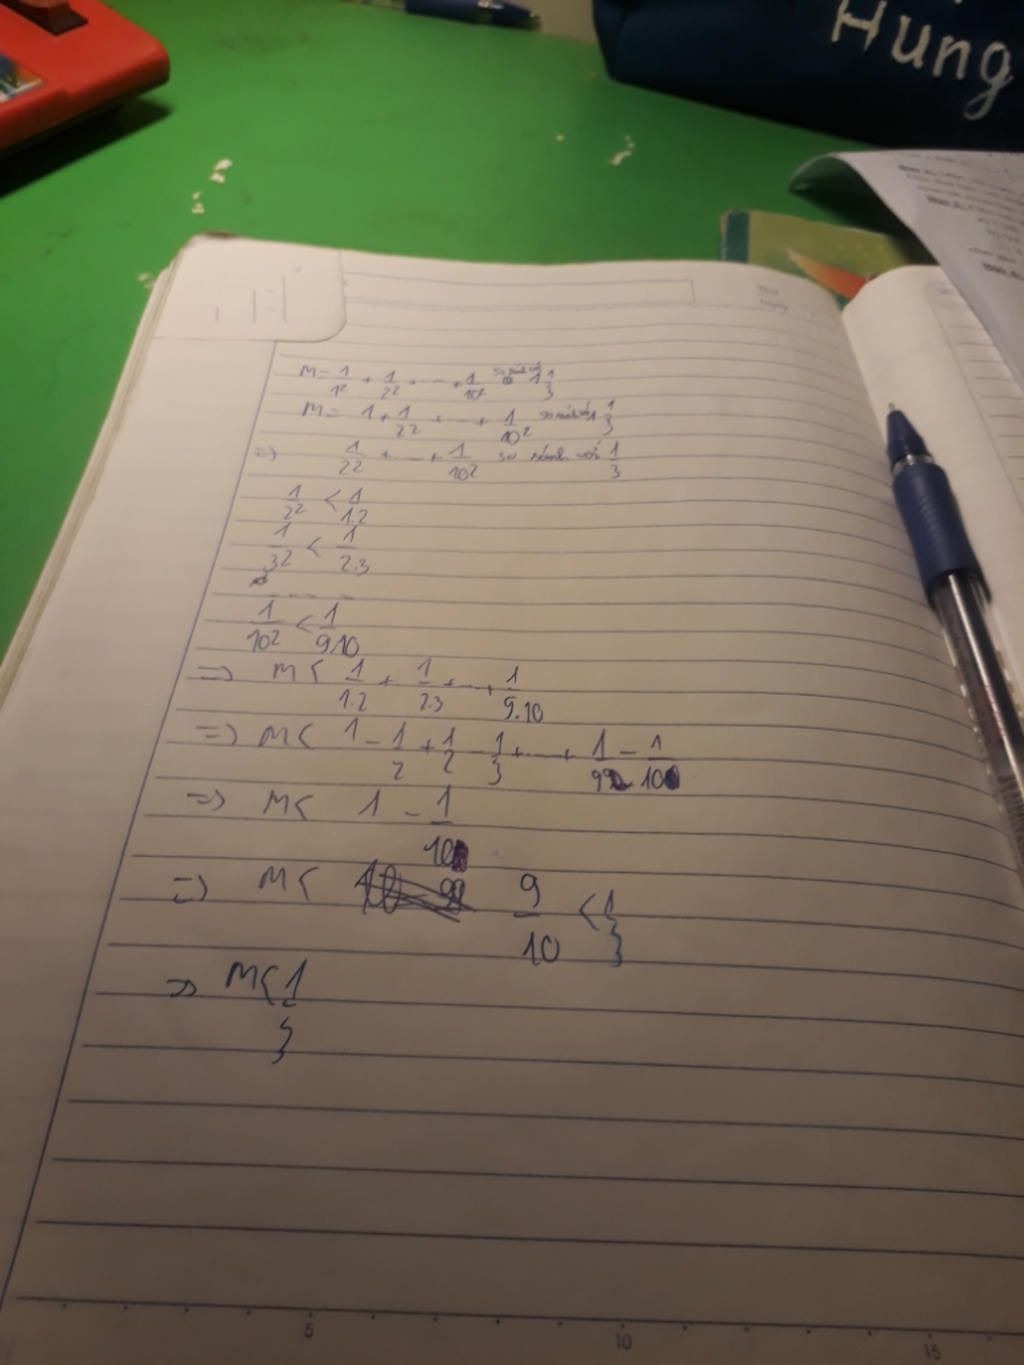 Hung
M = 1/1² + 1/2² + ... + 1/10² so sánh với 1 1/3
M = 1 + 1/2² + ... + 1/10² so sánh với 1 1/3
=> 1/2² + ... + 1/10² so sánh với 1/3
1/2² < 1/1.2
1/3² < 1/2.3
1/10² < 1/9.10
=> M < 1/1.2 + 1/2.3 + ... + 1/9.10
=> M < 1 - 1/2 + 1/2 - 1/3 + ... + 1/9 - 1/10
=> M < 1 - 1/10
=> M < 9/10 < 1/3
=> M < 1/3
5 10 15